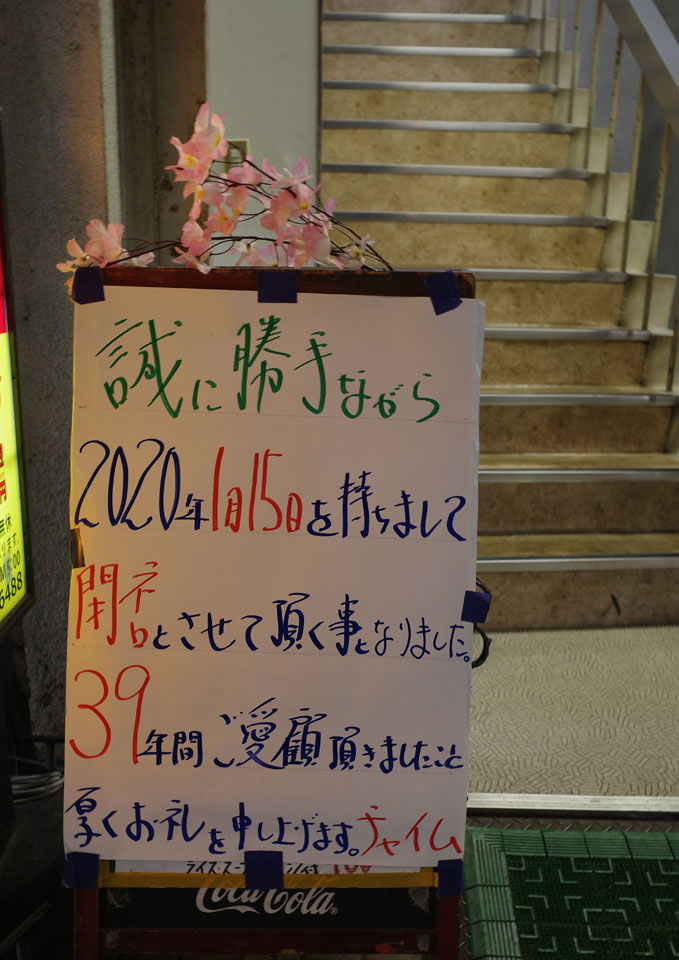 誠に勝手ながら
2020年1月15日を持ちまして
閉店とさせて頂く事となりました。
39年間ご愛顧頂きましたこと
厚くお礼を申し上げます。チャイム
ライス・スープ
Coca-Cola
6488